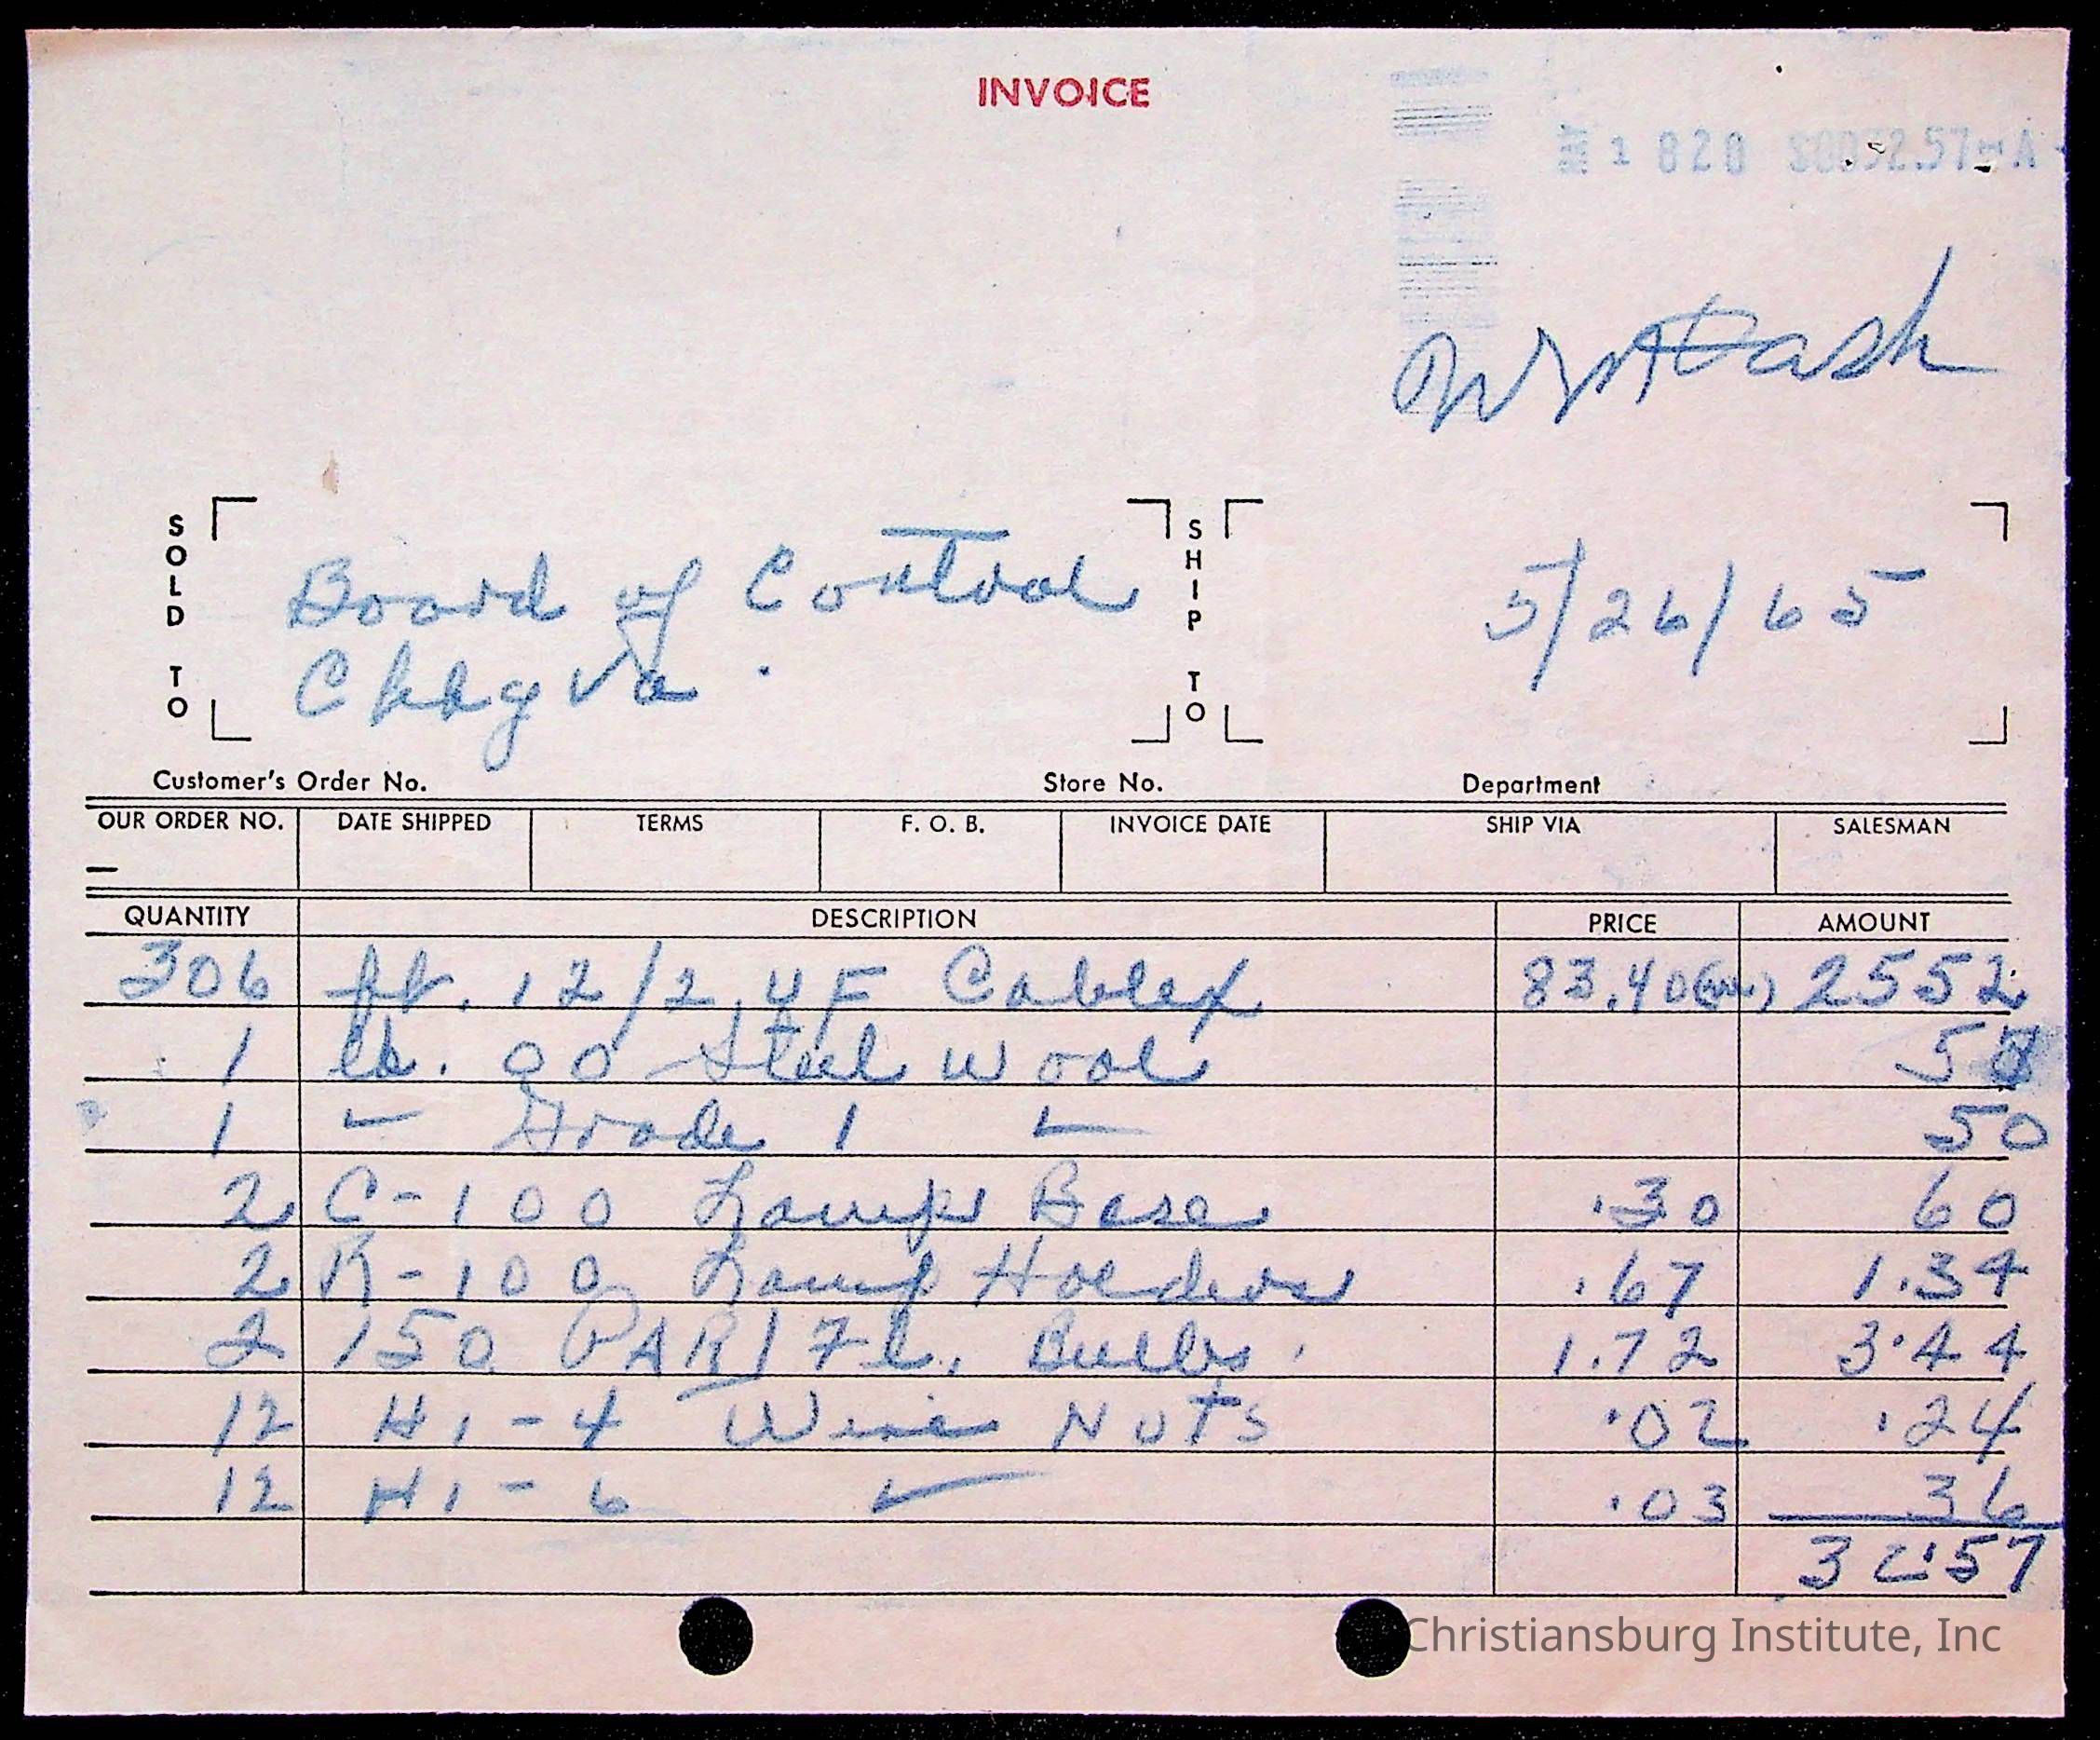 INVOICE
1 828 $0032.57 A
SOLD TO
Board of Control
Chbg Va.
SHIP TO
5/26/65
Customer's Order No. Store No. Department
OUR ORDER NO. DATE SHIPPED TERMS F. O. B. INVOICE DATE SHIP VIA SALESMAN
QUANTITY DESCRIPTION PRICE AMOUNT
306 ft. 12/2 UF Cablex 83.40 2552
1 lb. 00 Steel Wool 50
1 " Grade 1 " 50
2 C-100 Lamp Base .30 60
2 R-100 Lamp Holders .67 1.34
2 150 PAR/FL. Bulbs. 1.72 3.44
12 H1-4 Wire Nuts .02 .24
12 H1-6 " .03 36
32.57
Christiansburg Institute, Inc